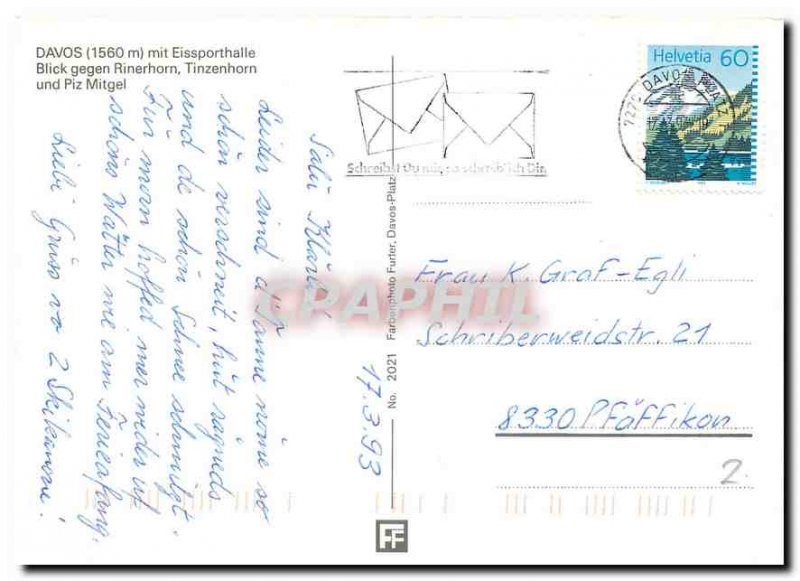 DAVOS (1560 m) mit Eissporthalle
Blick gegen Rinerhorn, Tinzenhorn
und Piz Mitgel
Helvetia 60
DAVOS PLATZ
Schreibst Du mir, so schreib ich Dir.
Salü Klärli!
Leider sind d'Sonne nöme so
schön verabreit, hüt rägnets
und de schön Schnee schmilzt.
Für morn hoffed mer wider uf
schöns Wätter wie am Ferieafang.
Liebi Grüss vo 2 Skikanone!
17.3.93
No. 2021 Farbenphoto Furter, Davos-Platz
Frau K. Graf-Egli
Schriberweidstr. 21
8330 Pfäffikon
2.
CPAPHIL
FF